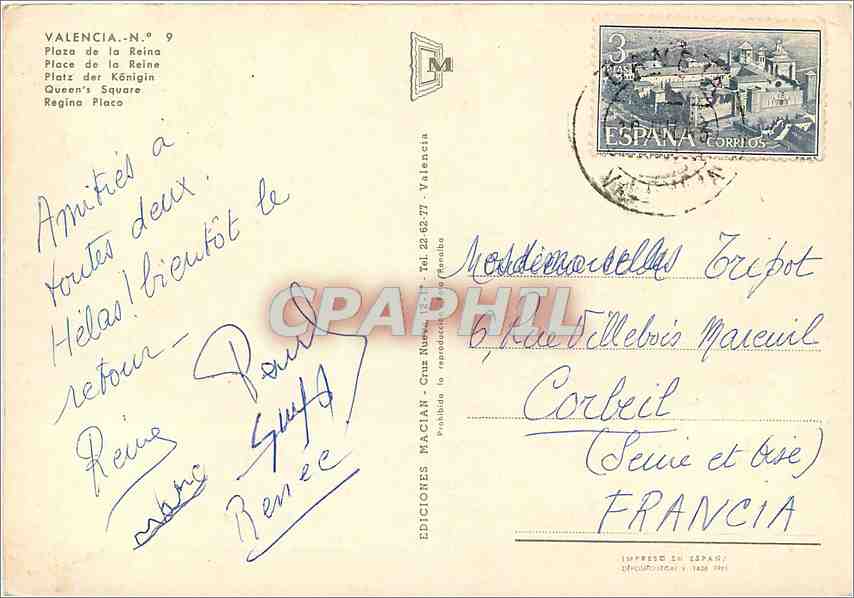 VALENCIA.-N.º 9
Plaza de la Reina
Place de la Reine
Platz der Königin
Queen's Square
Regina Placo
M
3
PTAS
ESPAÑA CORREOS
VALENCIA
Amitiés à
toutes deux.
Hélas! bientôt le
retour -
Reine
Paul
Renée
EDICIONES MACIAN - Cruz Nueva, 12-1º - Tel. 22-62-77 - Valencia
Prohibida la reproducción
CPAPHIL
Mesdemoiselles Tripot
6, Rue Villebois Mareuil
Corbeil
(Seine et Oise)
FRANCIA
IMPRESO EN ESPAÑA